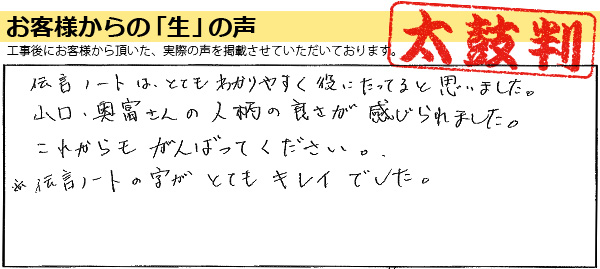 お客様からの「生」の声
太鼓判
工事後にお客様から頂いた、実際の声を掲載させていただいております。
伝言ノートは、とてもわかりやすく役にたってると思いました。
山口・奥富さんの人柄の良さが感じられました。
これからもがんばってください。
※伝言ノートの字がとてもキレイでした。